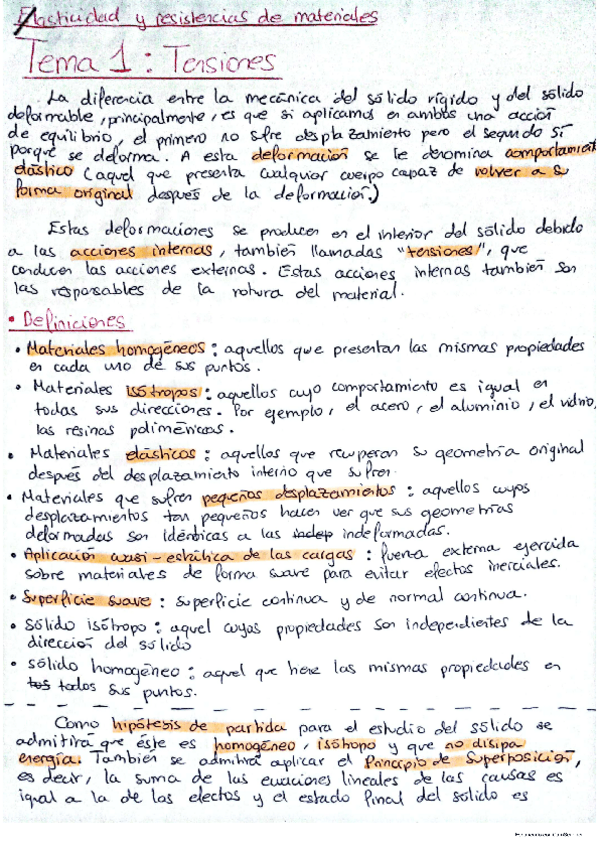 Elasticidad y resistencias de materiales
Tema 1: Tensiones
La diferencia entre la mecánica del sólido rígido y del sólido
deformable, principalmente, es que si aplicamos en ambos una acción
de equilibrio, el primero no sufre desplazamiento pero el segundo sí
porque se deforma. A esta deformación se le denomina comportamiento
elástico (aquel que presenta cualquier cuerpo capaz de volver a su
forma original después de la deformación.)
Estas deformaciones se producen en el interior del sólido debido
a las acciones internas, también llamadas "tensiones", que
conducen las acciones externas. Estas acciones internas también son
las responsables de la rotura del material.
• Definiciones
• Materiales homogéneos: aquellos que presentan las mismas propiedades
en cada uno de sus puntos.
• Materiales isótropos: aquellos cuyo comportamiento es igual en
todas sus direcciones. Por ejemplo, el acero, el aluminio, el vidrio,
las resinas poliméricas.
• Materiales elásticos: aquellos que recuperan su geometría original
después del desplazamiento interno que sufren.
• Materiales que sufren pequeños desplazamientos: aquellos cuyos
desplazamientos tan pequeños hacen ver que sus geometrías
deformadas son idénticas a las indep indeformadas.
• Aplicación cuasi-estática de las cargas: fuerza externa ejercida
sobre materiales de forma suave para evitar efectos inerciales.
• Superficie suave: superficie continua y de normal continua.
• sólido isótropo: aquel cuyas propiedades son independientes de la
dirección del sólido
• sólido homogéneo: aquel que tiene las mismas propiedades en
tos todos sus puntos.
Como hipótesis de partida para el estudio del sólido se
admitirá que éste es homogéneo, isótropo y que no disipa
energía. También se admitirá aplicar el Principio de Superposición,
es decir, la suma de las ecuaciones lineales de las causas es
igual a la de los efectos y el estado final del sólido es